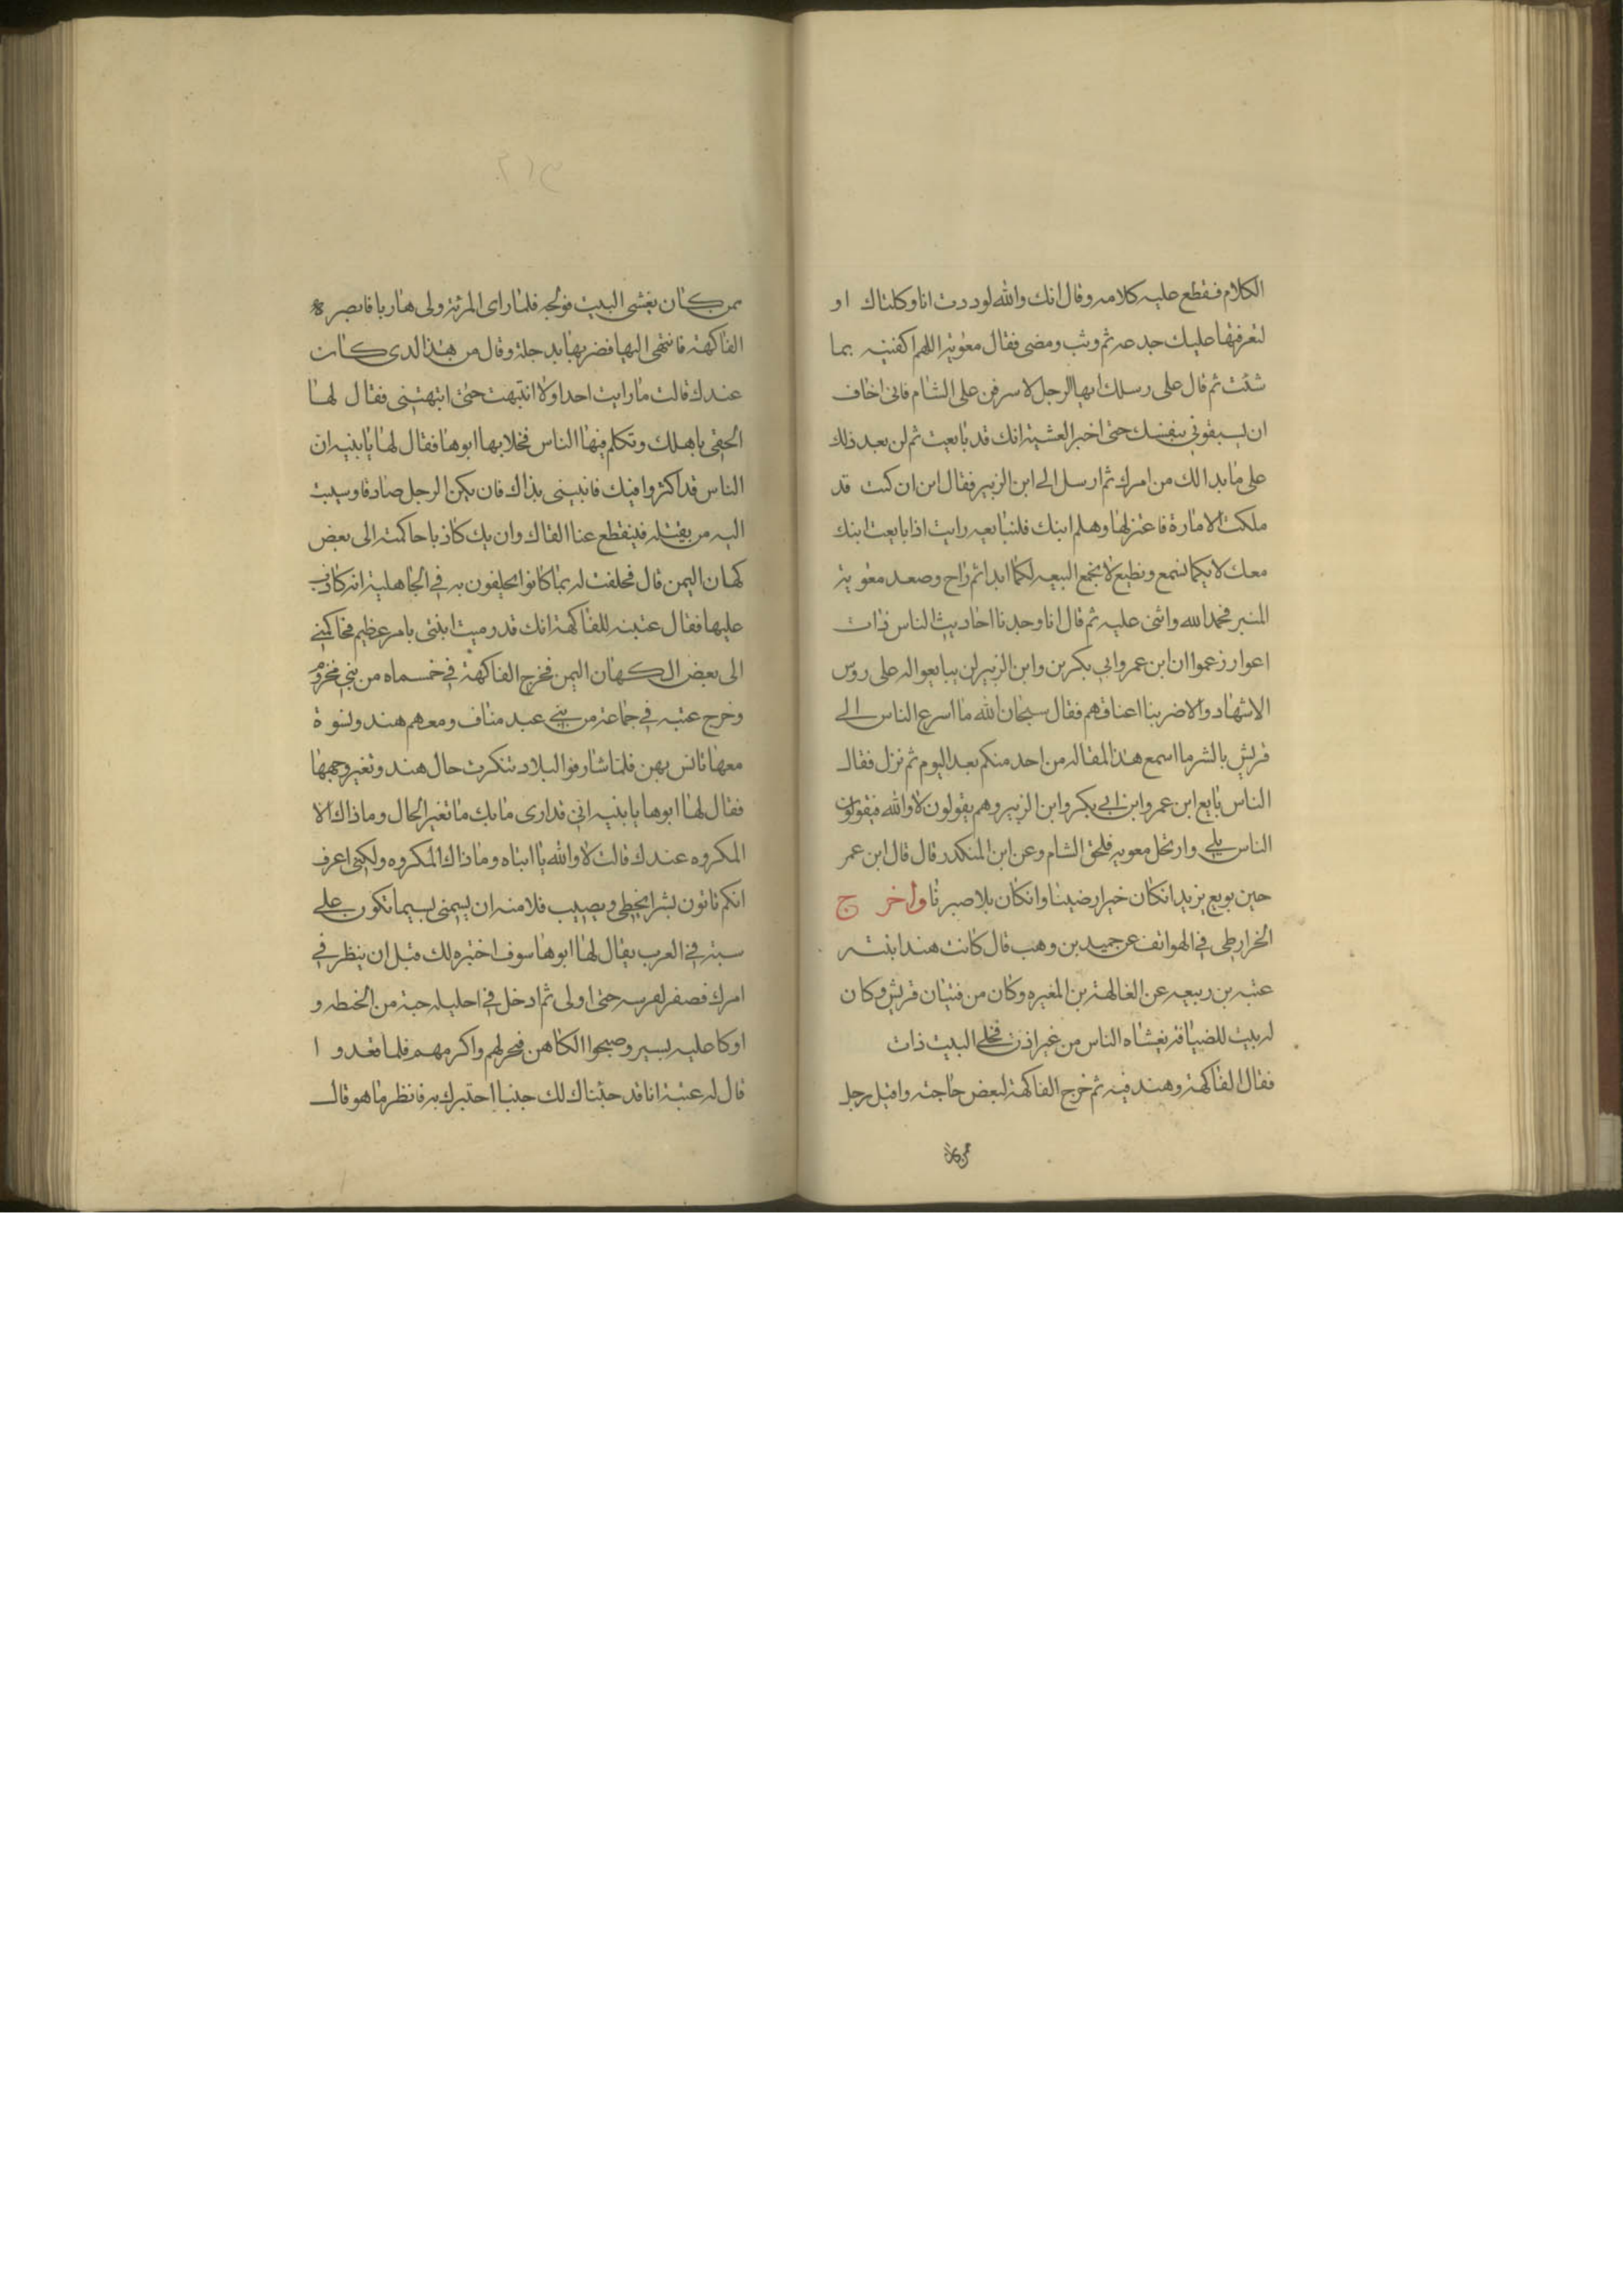 الكلام فقطع عليه كلامه وقال انك والله لوددت انا وكلناك او
لنعرفنها عليك جدعه ثم وثب ومضى فقال معوية اللهم اكفنيه بما
شئت ثم قال على رسلك ايها الرجل لا سرفن على الشام فانى اخاف
ان يسبقونى بنفسك حتى اخبر العشية انك قد بايعت ثم لن بعد ذلك
على ما بدالك من امرك ثم ارسل الى ابن الزبير فقال ابن ان كنت قد
ملكت الامارة فاعتزلها وهلم ابنك فلنبايعه رايت اذا بايعت ابنك
معك لايكما نسمع ونطيع لا نجمع البيعه لكما ابدا ثم راح وصعد معوية
المنبر فحمد الله واثنى عليه ثم قال انا وجدنا احاديث الناس ذات
اعوار زعموا ان ابن عمر وابى بكر بن وابن الزبير لن يبايعوا له على روس
الاشهاد والا ضربنا اعناقهم فقال سبحان الله ما اسرع الناس الى
قريش بالشر ما اسمع هذا المقاله من احد منكم بعد اليوم ثم نزل فقال
الناس بايع ابن عمر وابن ابى بكر وابن الزبير وهم يقولون لا والله فيقولون
الناس بلى وارتحل معويه فلحق الشام وعن ابن المنكدر قال قال ابن عمر
حين بويع يزيد انكان خيرا رضينا وانكان بلا صبرنا واخر ج
الخرارطى فى الهواتف عن حميد بن وهب قال كانت هند ابنته
عتبه بن ربيعه عن الغالهة بن المغيره وكان من فتيان قريش وكان
له بيت للضيافة يغشاه الناس من غير اذن فخلى البيت ذات
فقال الفاكهة وهند فيه ثم خرج الفاكهة لبعض حاجته واقبل رجل
ممن كان
ممن كان يغشى البيت فولجه فلما راى المرئة ولى هاربا فابصره
الفاكهة فانتهى اليها فضربها بد جلة وقال من هذا لدى كان
عندك قالت ما رايت احدا ولا انتبهت حتى انبهتنى فقال لها
الحقى باهلك وتكلم فيها الناس فخلا بها ابوها فقال لها يا بنيه ان
الناس قد اكثروا فيك فانبينى بذاك فان يكن الرجل صادقا وسيبت
اليه من يقتله فينقطع عنا القاك وان يك كاذبا حاكمته الى بعض
كهان اليمن قال فحلفت له بما كانوا يحلفون به فى الجاهلية انه كاذب
عليها فقال عتبة للفاكهة انك قد رميت ابنتى بامر عظيم فحاكمنى
الى بعض الكهان اليمن فخرج الفاكهة فى خمسماه من بنى مخزوم
وخرج عتبه فى جماعة من بنى عبد مناف ومعهم هند ونسوة
معها تانس بهن فلما شارفوا البلاد تنكرت حال هند وتغير وجهها
فقال لها ابوها يا بنيه انى قد ارى ما بك ما تغير الحال وما ذاك الا
المكروه عندك قالت لا والله يا ابتاه وما ذاك المكروه ولكنى اعرف
انكم تاتون بشرا يخطى ويصيب فلا منه ان يسمنى بسيما تكون على
سبة فى العرب يقال لها ابوها سوف اختبره لك قبل ان ينظر فى
امرك فصفر لفرسه حتى اولى ثم ادخل فى احليله حبة من الخطه و
اوكا عليه بسير وصبحوا الكاهن فنحر لهم واكرمهم فلما تغدو ا
قال له عتبة انا قد جئناك لك جنبا احتبرك به فانظر ما هو قال